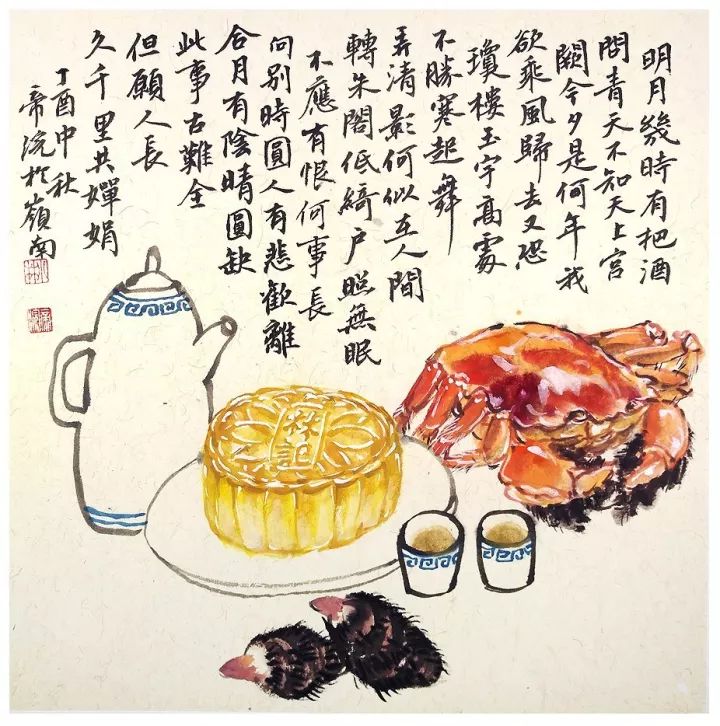 明月幾時有把酒
問青天不知天上宮
闕今夕是何年我
欲乘風歸去又恐
瓊樓玉宇高處
不勝寒起舞
弄清影何似在人間
轉朱閣低綺户照無眠
不應有恨何事長
向別時圓人有悲歡離
合月有陰晴圓缺
此事古難全
但願人長
久千里共嬋娟
丁酉中秋
帝浣於嶺南
記